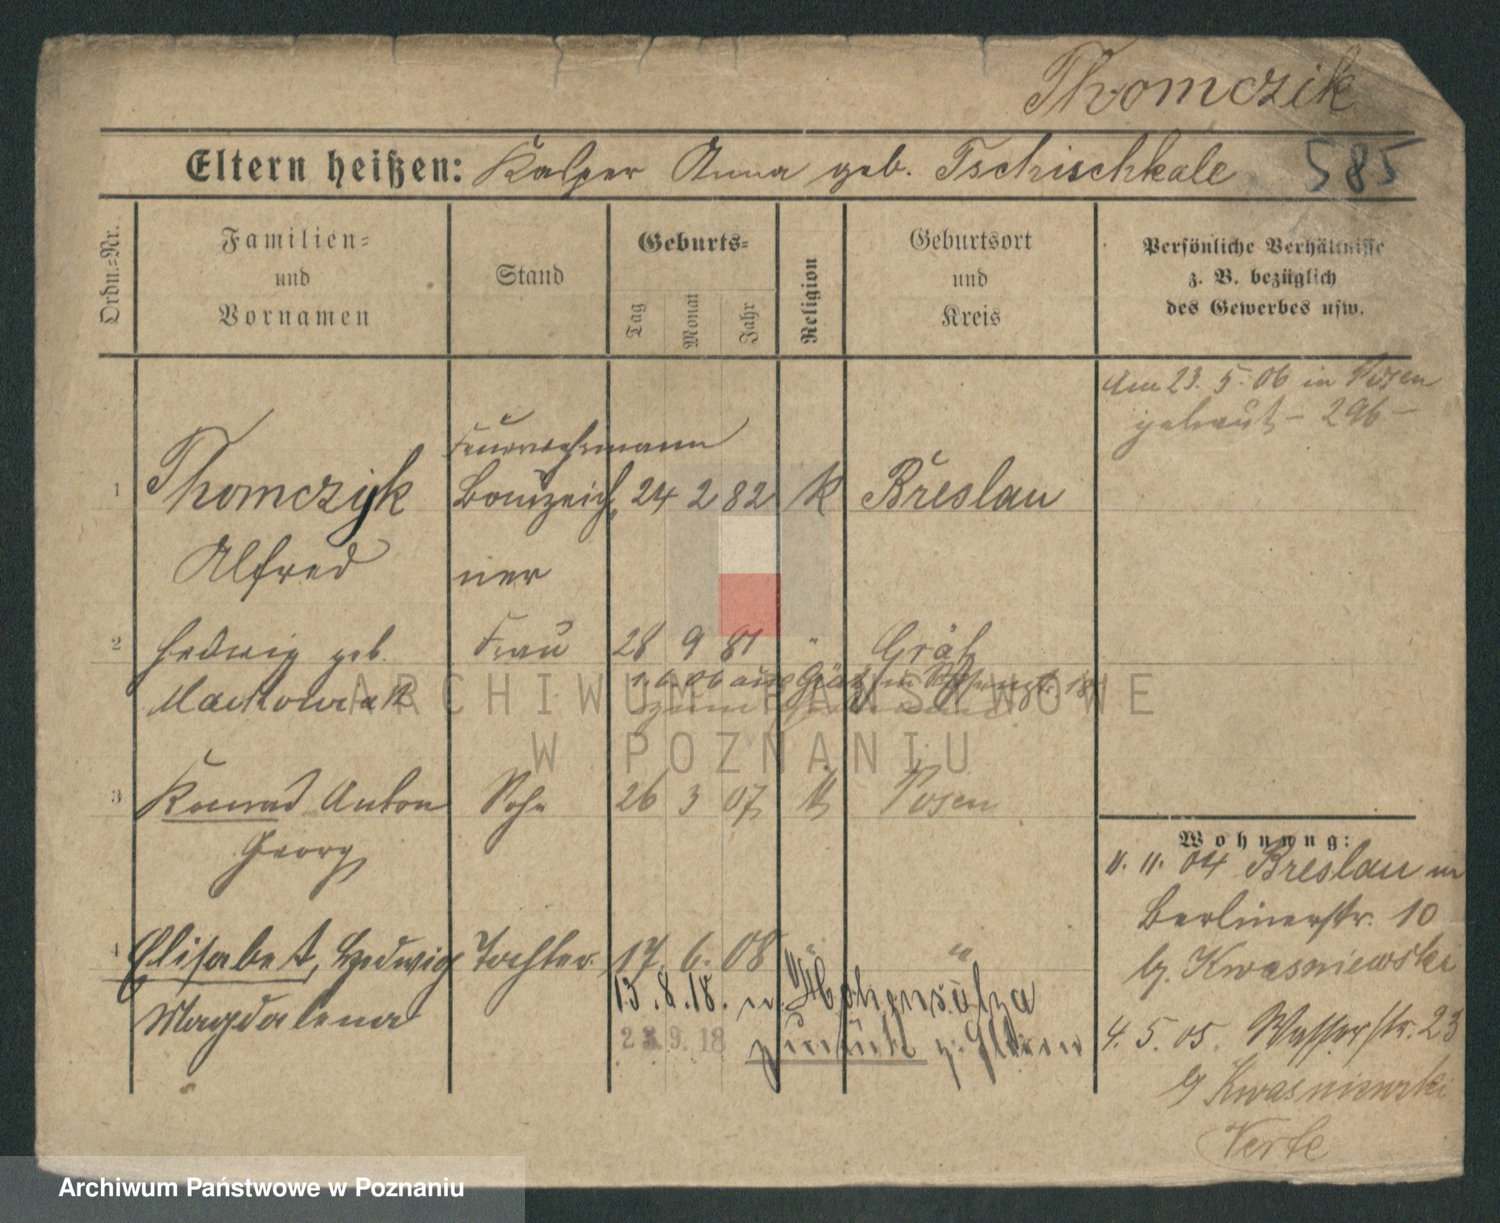 Thomczik
Eltern heißen: Kasper Anna geb. Tschischkale 585
Ordn.-Nr.
Familien-
und
Vornamen
Stand
Geburts-
Tag
Monat
Jahr
Religion
Geburtsort
und
Kreis
Persönliche Verhältnisse
z. B. bezüglich
des Gewerbes usw.
Am 23. 5. 06 in Posen
getraut – 296 –
Feuerwehrmann
1 Thomczyk Bauzeich 24 2 82 k Breslau
Alfred ner
2 Hedwig geb. Frau 28 9 81 " Grätz
Maćkowiak 1. 6. 06 aus Grätz
zum
3 Konrad Anton Sohn 26 3 07 k Posen
Georg
4 Elisabet, Hedwig Tochter 17. 6. 08 " "
Magdalena 13. 8. 18. n. Hohensalza
23. 9. 18 zurück z. Eltern
Wohnung:
11. 11. 04 Breslau
Berlinerstr. 10
b/. Kwasniewski
4. 5. 05. Wasserstr. 23
b/ Kwasniewski
Verte
ARCHIWUM PAŃSTWOWE
W POZNANIU
Archiwum Państwowe w Poznaniu